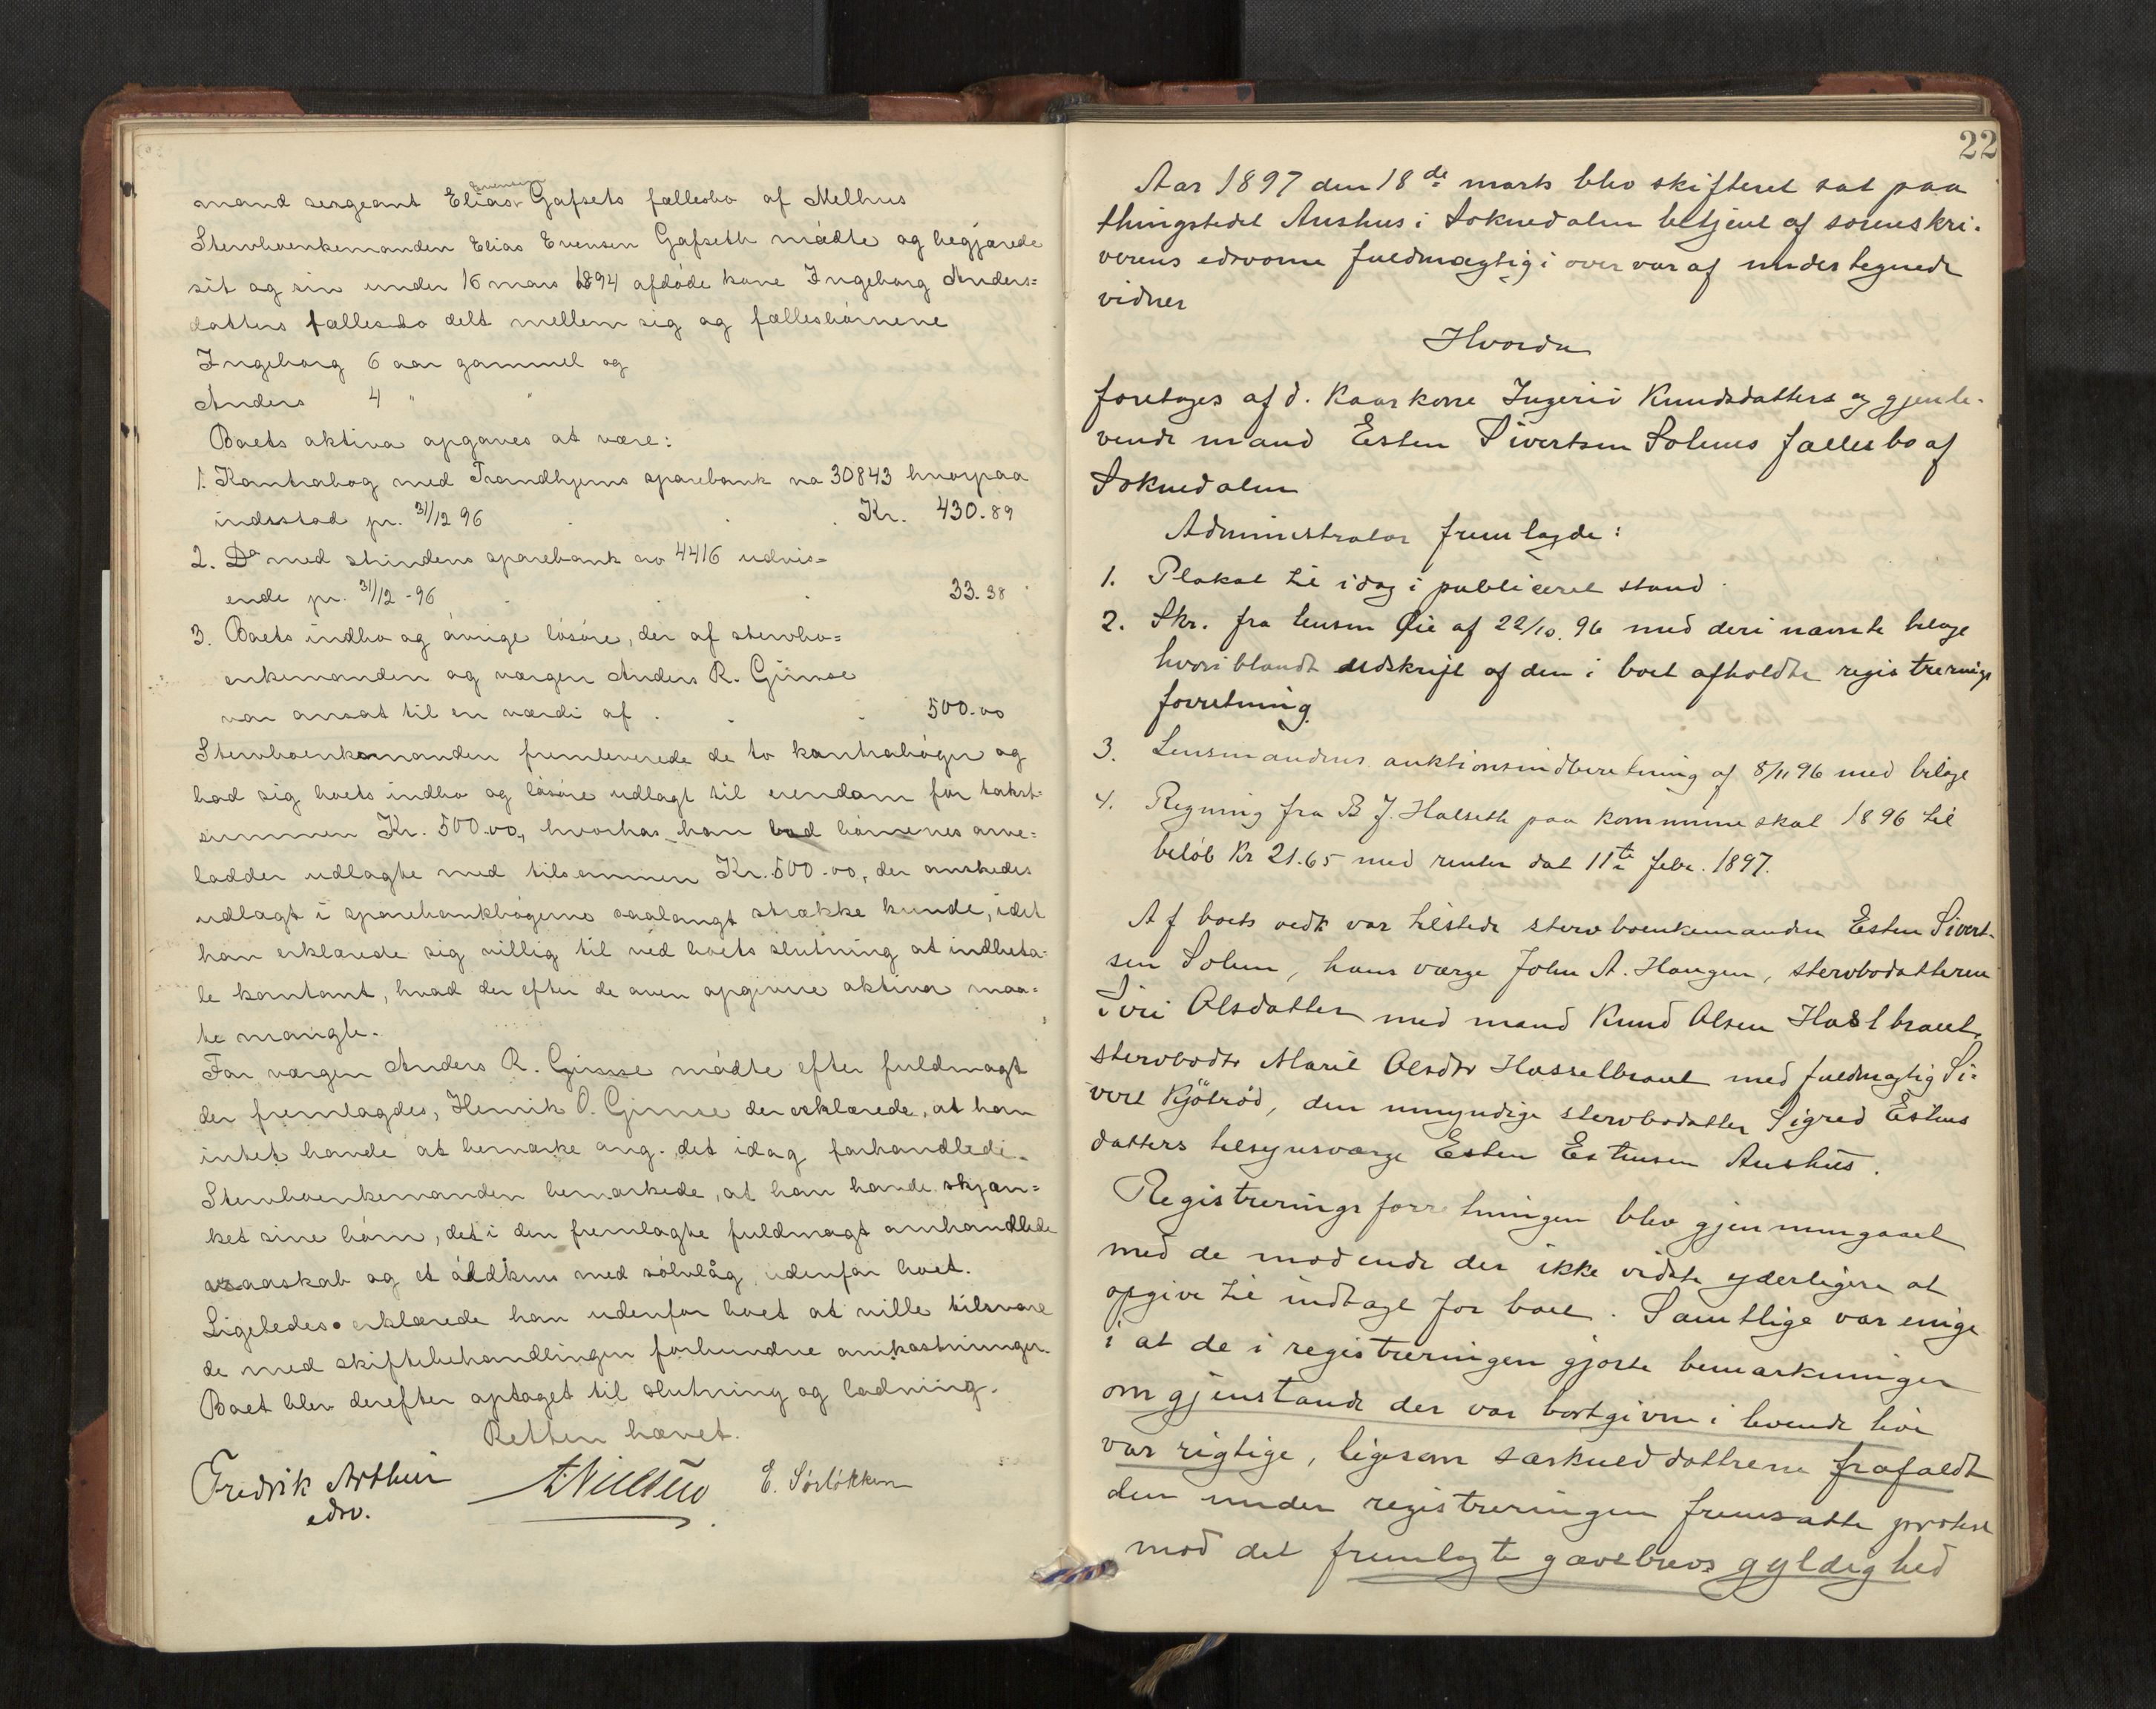 mand sergeant Elias Evensen Gafsets fællesbo af Melhus
Stervboenkemanden Elias Evensen Gafseth mødte og begjærede
sit og sin under 16 mars 1894 afdøde kone Ingeborg Anders=
datters fællesbo delt mellem sig og fællesbörnene
Ingeborg 6 aar gammel og
Anders 4 " "
Boets aktiva opgaves at være:
1. Kontrabog med Trondhjems sparebank no 30843 hvorpaa
indestod pr. 31/12 96 . . . Kr. 430.89
2. Do med strindens sparebank no 4416 udvis=
ende pr. 31/12 -96 . . . 33.38
3. Boets indbo og øvrige løsøre, der af stervbo=
enkemanden og værgen Anders R. Gimse
var ansat til en værdi af . . . 500.00
Stervboenkemanden fremleverede de to kontrabøger og
bad sig boets indbo og løsøre udlagt til eiendom for takst=
summen Kr. 500.00, hvorhos han bad børnenes arve=
lodder udlagte med tilsammen Kr. 500.00, der ønskedes
udlagt i sparebankbøgerne saalangt strække kunde, idet
han erklærede sig villig til ved boets slutning at indbeta=
le kontant, hvad der efter de oven opgivne aktiva maa=
te mangle.
For værgen Anders R. Gimse mødte efter fuldmagt
der fremlagdes, Henrik O. Gimse der erklærede, at han
intet havde at bemærke ang. det idag forhandlede.
Stervboenkemanden bemærkede, at han havde skjæn=
ket sine børn, det i den fremlagte fuldmagt omhandlede
skab og et øldkrus med sølvlåg udenfor boet.
Ligeledes erklærede han udenfor boet at ville tilsvare
de med skiftebehandlingen forbundne omkostninger.
Boet blev derefter optaget til slutning og lodning.
Retten hævet.
Fredrik Arthur A. Nielsen E. Sørløkken
edsv.
22
Aar 1897 den 18de marts blev skifteret sat paa
thingstedet Aushus i Soknedalen betjent af sorenskri-
verens edsvorne fuldmægtig i overvær af undertegnede
vidner
Hvorda
foretages afd. kaarkone Ingerid Knudsdatters og gjenle-
vende mand Esten Sivertsen Solems fællesbo af
Soknedalen
Administrator fremlagde:
1. Plakat til idag i publiceret stand.
2. Skr. fra lensm Øie af 22/10. 96 med deri nævnte bilage
hvoriblandt udskrift af den i boet afholdte registrerings
forretning.
3. Lensmandens auktionsindberetning af 8/11 96 med bilage
4. Regning fra B J. Halseth paa kommuneskat 1896 til
beløb Kr 21.65 med renter dat 11te febr. 1897.
Af boets vedk var tilstede stervboenkemanden Esten Sivert-
sen Solem, hans værge John A. Haugen, stervbodatteren
Siri Olsdatter med mand Knud Olsen Haslbraut,
stervbodtr Marit Olsdtr Hasselbraut med fuldmægtig Si-
vert Kjøtrød, den umyndige stervbodatter Sigred Estens
datters tilsynsværge Esten Estensen Aushus.
Registreringsforretningen blev gjennemgaaet
med de mødende der ikke vidste yderligere at
opgive til indtægt for boet. Samtlige var enige
i at de i registreringen gjorte bemærkninger
om gjenstande der var bortgivne i levende live
var rigtige, ligesom særkuldsdøttrene frafaldt
den under registreringen fremsatte protest
mod det fremlagte gavebrevs gyldighed